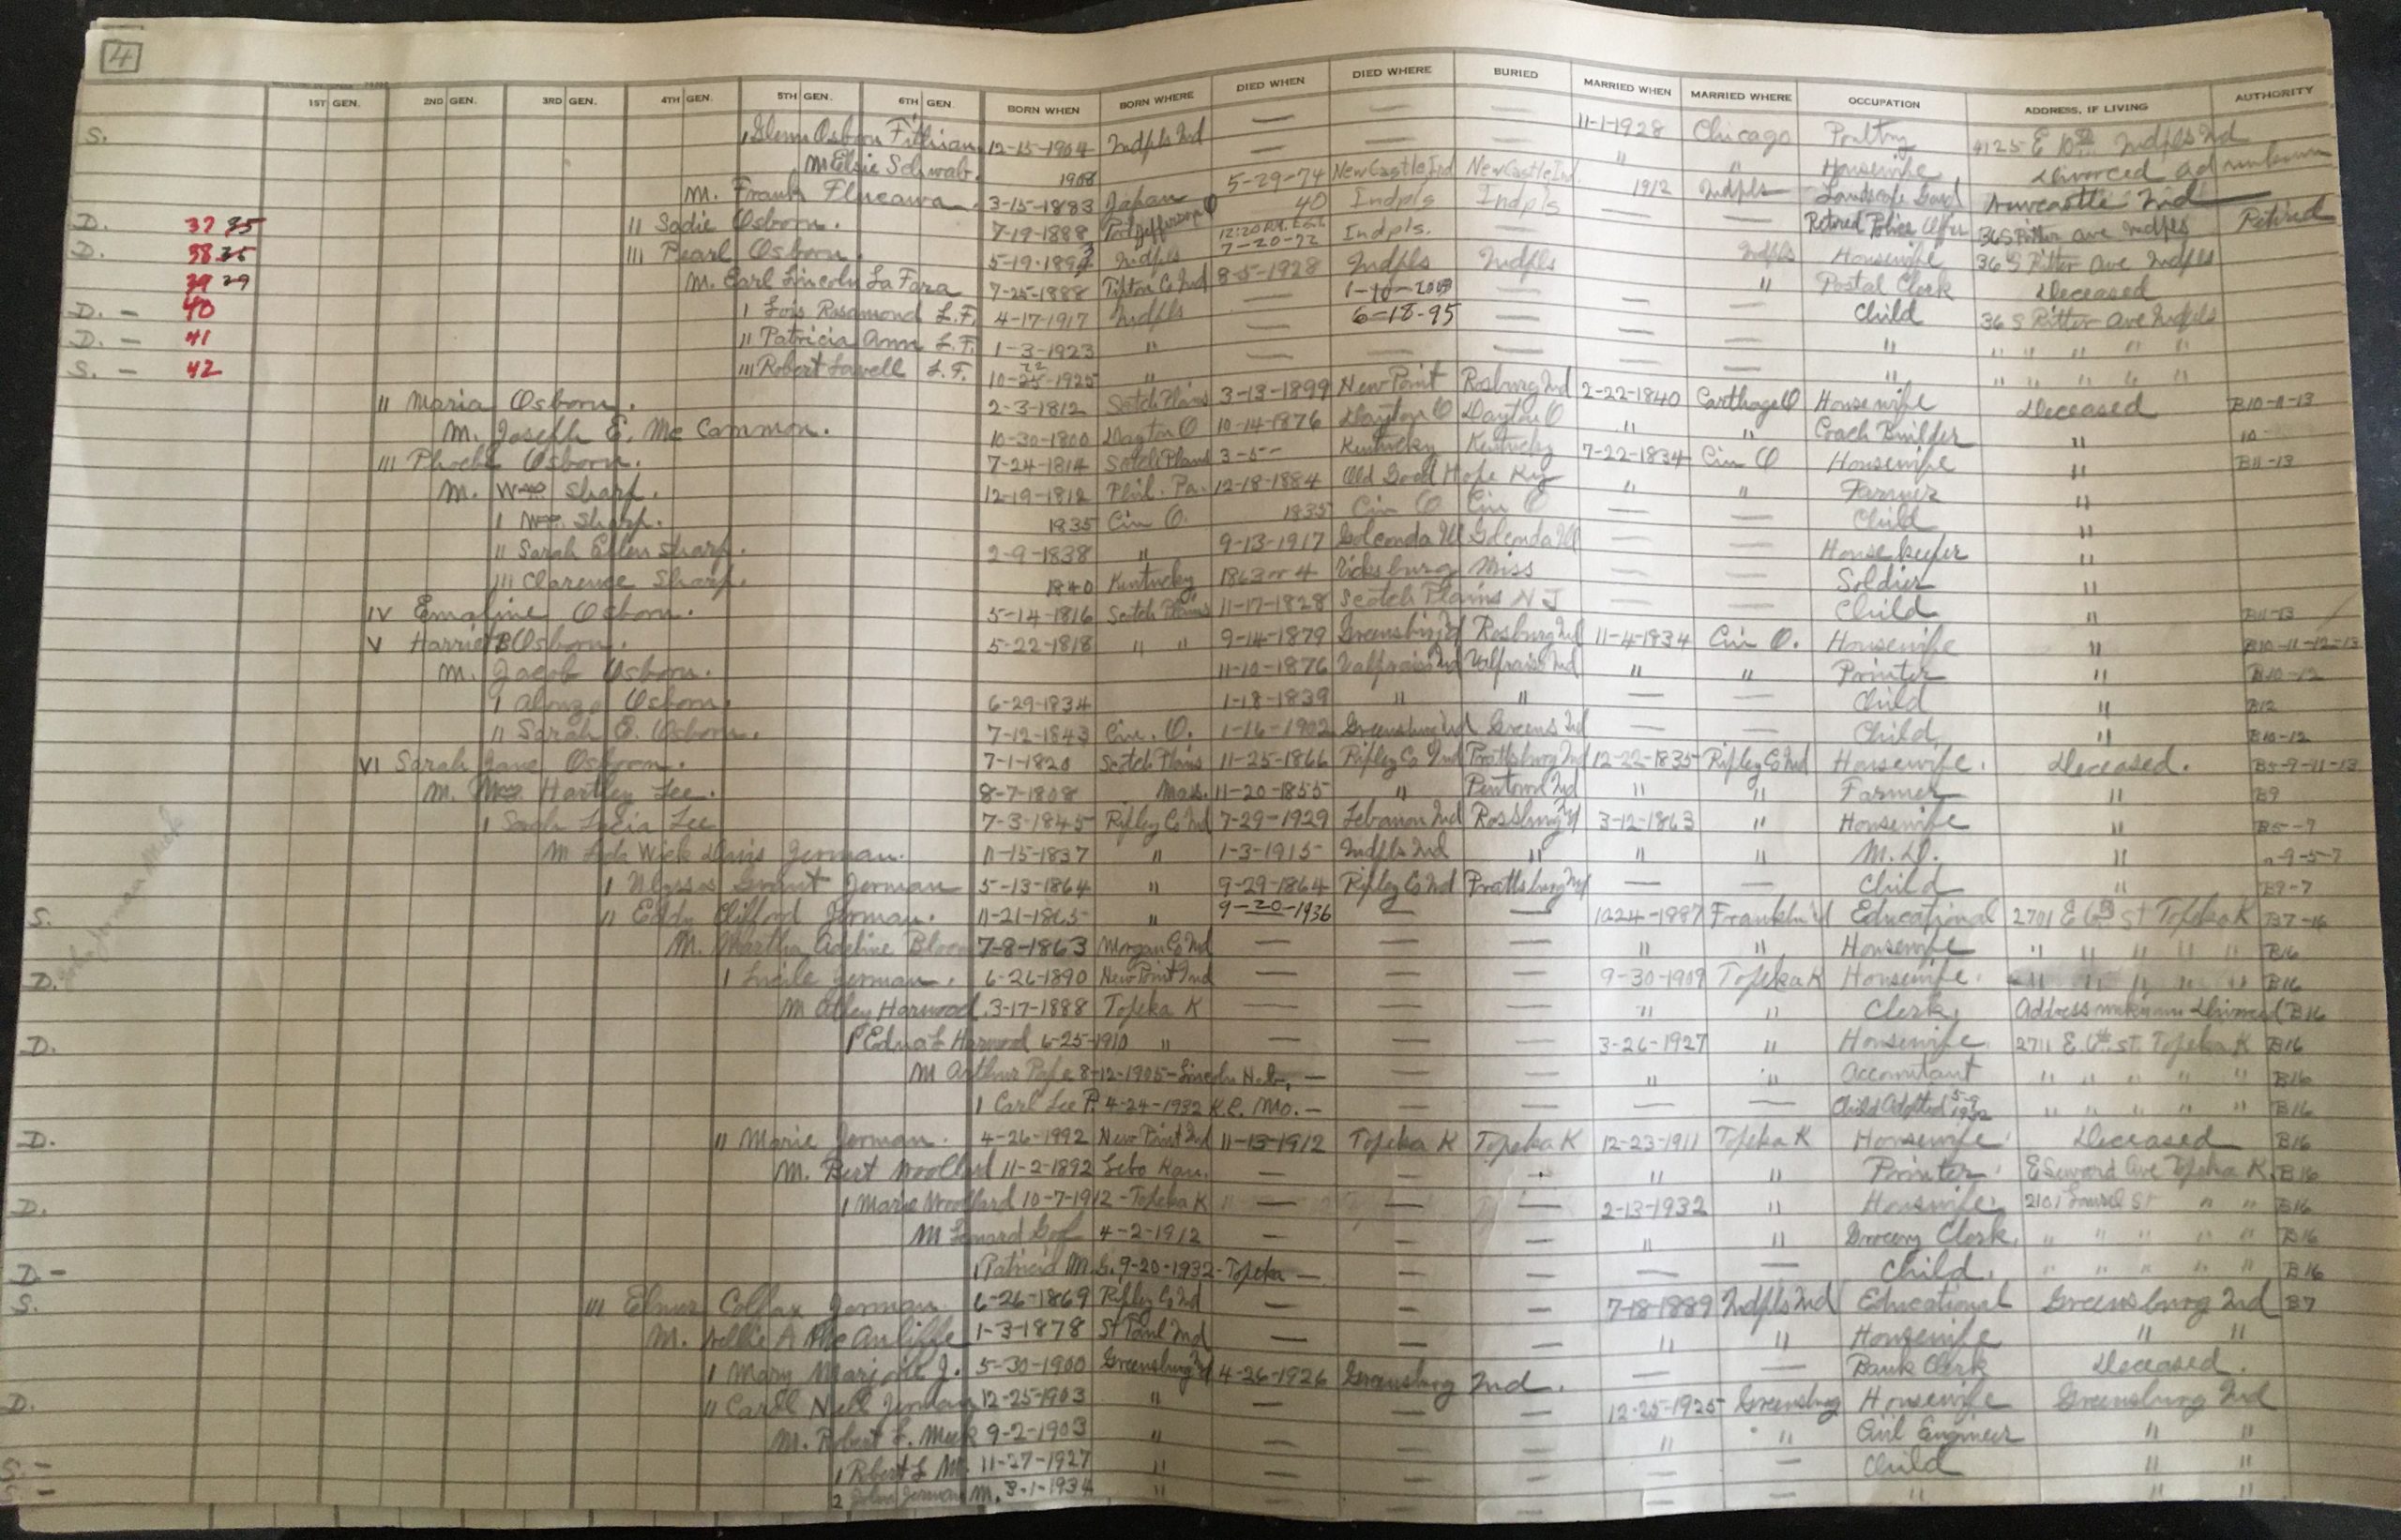 4
1ST GEN. 2ND GEN. 3RD GEN. 4TH GEN. 5TH GEN. 6TH GEN. BORN WHEN BORN WHERE DIED WHEN DIED WHERE BURIED MARRIED WHEN MARRIED WHERE OCCUPATION ADDRESS, IF LIVING AUTHORITY
S. I Glenn Osborn Fithian 12-15-1904 Indpls Ind — — — 11-1-1928 Chicago Poultry 4125 E 10th Indpls Ind
M Elsie Schwab. 1908 — — — " " Housewife Divorced ad unknown
M. Frank 3-15-1883 Japan 5-29-74 New Castle Ind New Castle Ind. 1912 Indpls Landscape Gard Newcastle Ind
D. 37 35 II Sadie Osborn. 7-19-1888 Portjefferson O 40 Indpls Indpls — — Retired Police Officer 36 S Ritter ave Indpls Retired
D. 38 III Pearl Osborn. 5-19-1893 Indpls 12:20 P.M. 7-20-72 Indpls. Indpls Housewife 36 S Ritter Ave Indpls
39 29 M. Earl Lincoln La Fara 7-25-1888 Tipton Co Ind 8-5-1928 Indpls Indpls " Postal Clerk Deceased
D. - 40 I Lois Rosamond L.F. 4-17-1917 Indpls — 1-10-2003 — — Child 36 S Ritter Ave Indpls
D. - 41 II Patricia Ann L.F. 1-3-1923 " 6-18-95 — — " " " " " "
S. - 42 III Robert Lavell L.F. 10-22-1925 " — — — — — " " " " " "
II Maria Osborn. 2-3-1812 Scotch Plains 3-13-1899 New Point Rosburg Ind 2-22-1840 Carthage O Housewife Deceased B10-11-13
M. Joseph E. McCammon. 10-30-1800 Dayton O 10-14-1876 Dayton O Dayton O " " Coach Builder " 10
III Phoebe Osborn. 7-24-1814 Scotch Plains 3-5-- Kentucky Kentucky 7-22-1834 Cin O Housewife " B11-13
M. Wm Sharp. 12-19-1812 Phil. Pa. 12-18-1884 Old Good Hope Ky " " Farmer "
I Wm. Sharp. 1835 Cin O. 1835 Cin O Cin O — — Child "
II Sarah Ellen Sharp. 2-9-1838 " 9-13-1917 Golconda Ill Golconda Ill — — Housekeeper "
III Clarence Sharp. 1840 Kentucky 1863 or 4 Vicksburg Miss — — Soldier "
IV Emaline Osborn. 5-14-1816 Scotch Plains 11-17-1828 Scotch Plains N J — — Child " B11-13
V Harriet B Osborn. 5-22-1818 " " 9-14-1879 Greensburg Ind Rosburg Ind 11-4-1834 Cin O. Housewife " B10-11-12-13
M. Jacob Osborn. 11-10-1876 Valpraiso Ind Valpraiso Ind " " Printer " B10-12
I Alonzo Osborn. 6-29-1834 1-18-1839 " " — — Child " B12
II Sarah E. Osborn. 7-12-1843 Cin. O. 1-16-1902 Greensburg Ind Greens Ind — — Child, " B10-12
VI Sarah Jane Osborn. 7-1-1820 Scotch Plains 11-25-1866 Ripley Co Ind Prattsburg Ind 12-22-1835 Ripley Co Ind Housewife. Deceased. B5-9-11-13
M. Hartley Lee. 8-7-1808 Mass. 11-20-1855 " Ind " " Farmer " B9
I Sarah Lee 7-3-1845 Ripley Co Ind 7-29-1929 Lebanon Ind Rossburg Ind 3-12-1863 " Housewife " B5-9
M Wick Davis Jerman. 11-15-1837 " 1-3-1915 Indpls Ind " " " M.D. " -9-5-7
I Ulysses Grant Jerman 5-13-1864 " 9-29-1864 Ripley Co Ind Prattsburg Ind — — Child " B9-7
S. II Eddy Clifford Jerman. 11-21-1865 " 9-20-1936 — — 10-24-1887 Franklin Ind Educational 2701 E 6th St Topeka K B7-16
John Jerman Meek
M. Martha Adeline Bloom 7-8-1863 Morgan Co Ind — — — " " Housewife " " " " " B16
D. I Lucile Jerman. 6-26-1890 New Point Ind — — — 9-30-1909 Topeka K Housewife. " " " " B16
M Atley Harwood 3-17-1888 Topeka K — — — " " Clerk, Address unknown Divorced B16
D. I Edna L Harwood 6-25-1910 " — — — 3-26-1927 " Housewife 2711 E. 6th st. Topeka K B16
M Arthur Pape 8-12-1905 - Lincoln Neb, — — — " " Accountant " " " " " B16
I Carl Lee P. 4-24-1932 K.C. Mo. — — — — — Child Adopted 5-9 1932 " " " " " B16
D. II Marie Jerman. 4-26-1992 New Point Ind 11-13-1912 Topeka K Topeka K 12-23-1911 Topeka K Housewife Deceased B16
M. Bert Woollard 11-2-1892 Lebo Kan. — — — " " Printer. E Seward Ave Topeka K. B16
D. I Marie Woollard 10-7-1912 - Topeka K — — — 2-13-1932 " Housewife. 2101 Laurel St " " B16
M Leonard Gof 4-2-1912 — — — " " Grocery Clerk. " " " " " B16
D - I Patricia M. G. 9-20-1932 - Topeka — — — — — Child. " " " " " B16
S. III Elmer Colfax Jerman 6-26-1869 Ripley Co Ind — — — 7-18-1889 Indpls Ind Educational Greensburg Ind B7
M. Nellie A McAuliffe 1-3-1878 St Paul Ind — — — " " Housewife " "
I Mary Marjorie J. 5-30-1900 Greensburg Ind 4-26-1926 Greensburg Ind. — — Bank Clerk Deceased.
D. II Nell Jerman 12-25-1903 " — — — 12-25-1925 Greensburg Housewife Greensburg Ind
M. Robert L. Meek 9-2-1903 " — — — " " Civil Engineer " "
S. - 1 Robert L M. 11-27-1927 " — — — — — Child " "
S - 2 John Jerman M. 3-1-1934 " — — — — — " " "